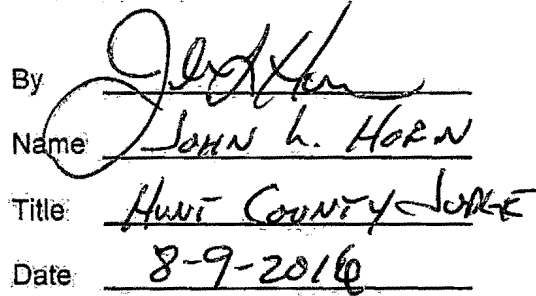 By
Name JOHN L. HORN
Title HUNT COUNTY JUDGE
Date 8-9-2016